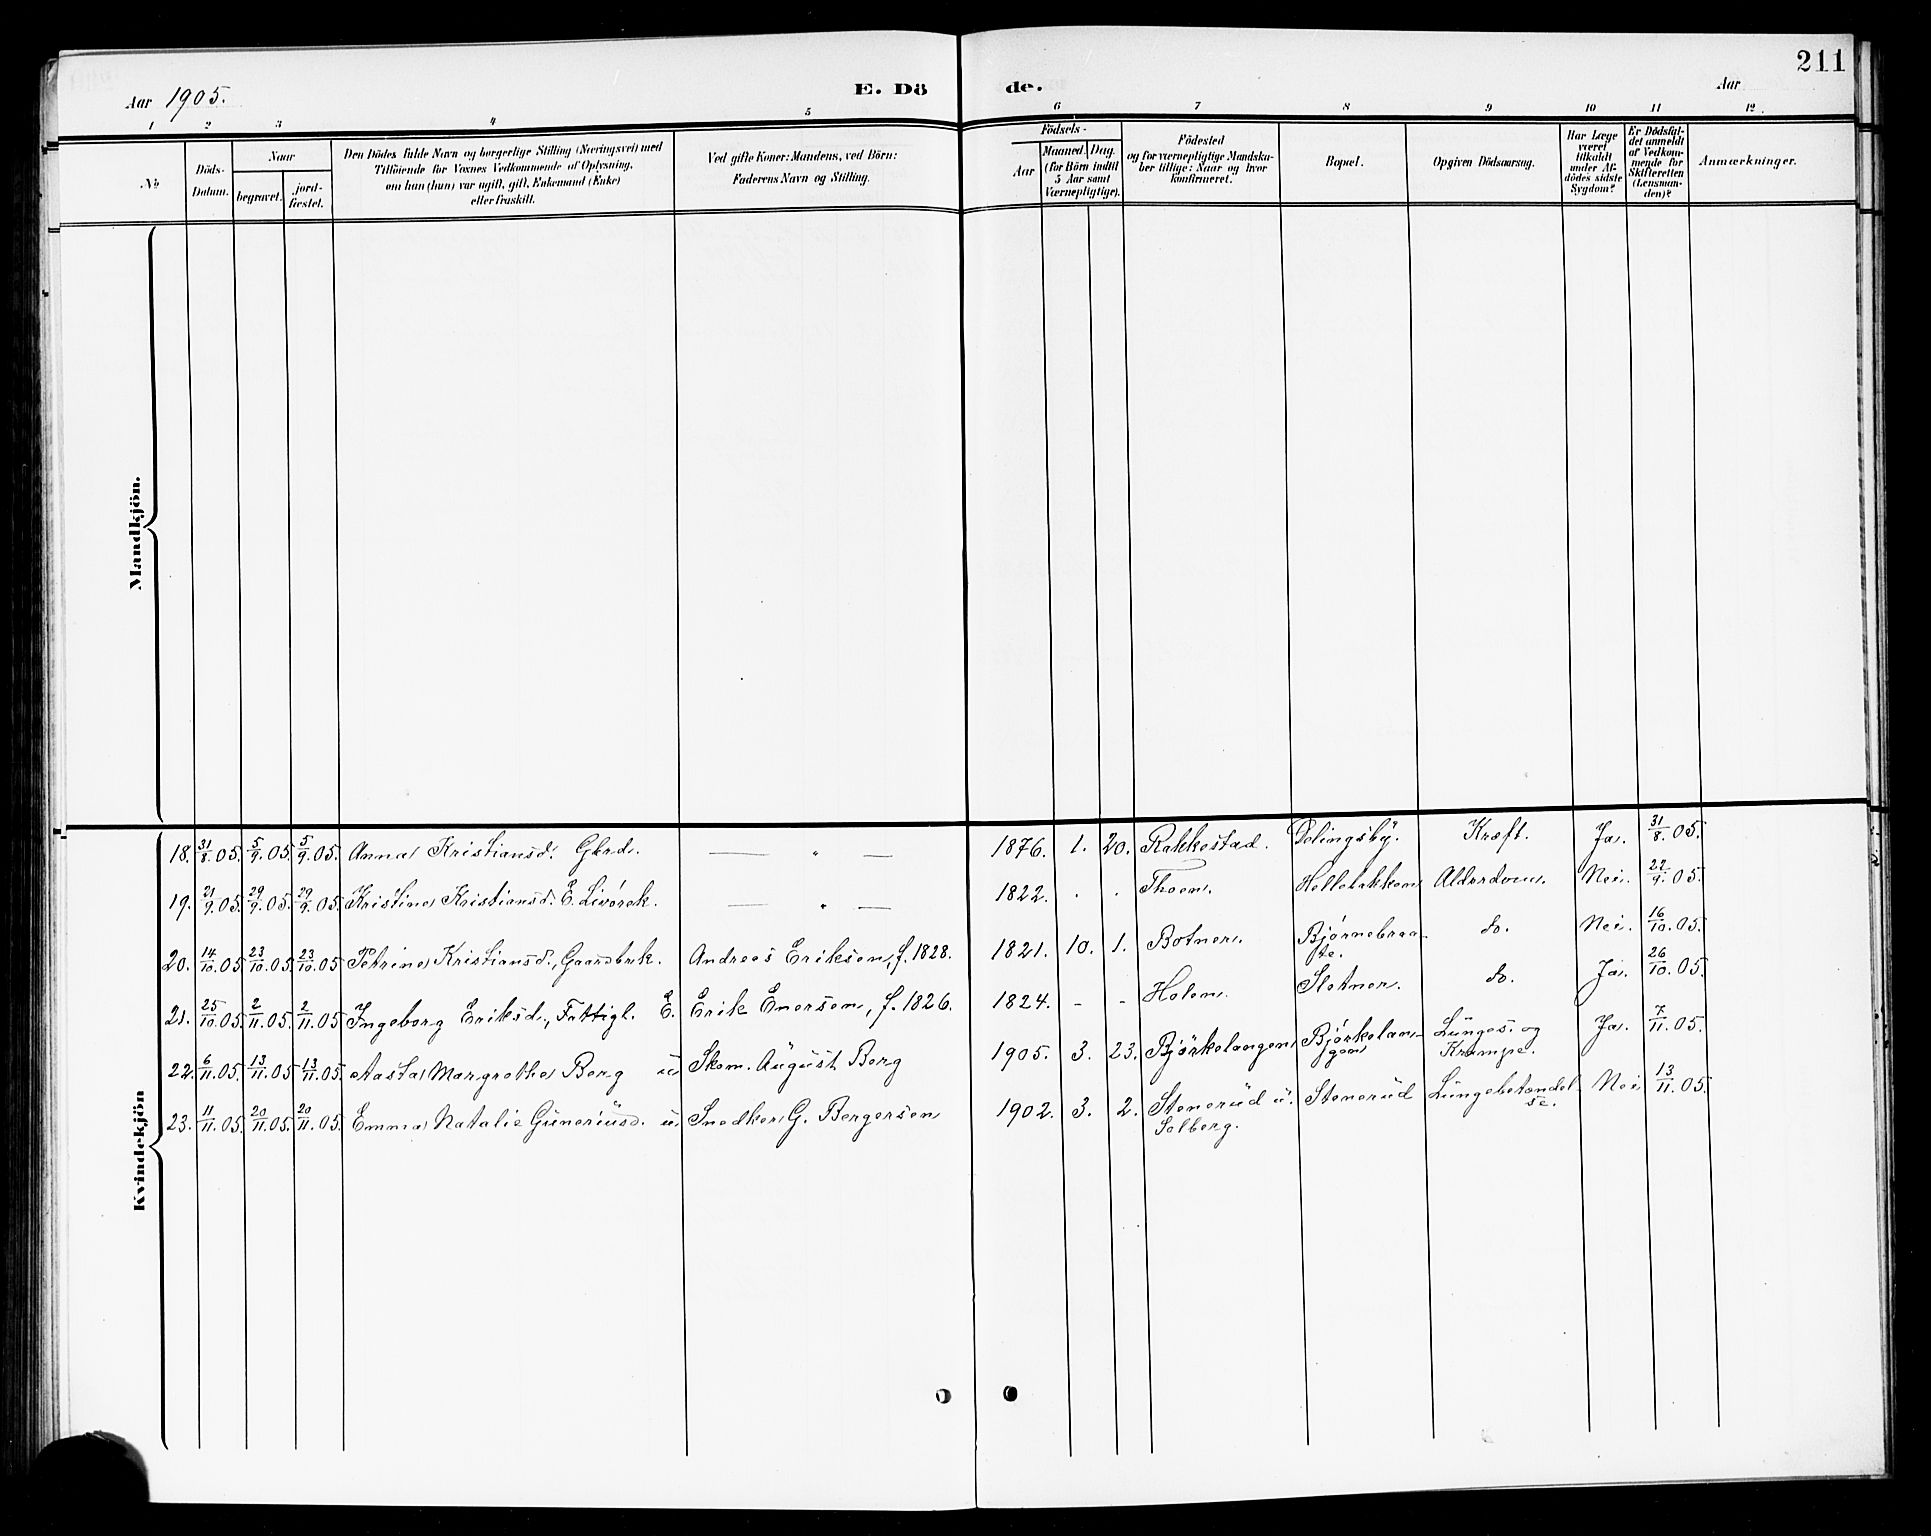 211
Aar 1905. E. Dö de. Aar
1 2 3 4 5 6 7 8 9 10 11 12.
No
Döds-Datum.
Naar
begravet. jord-fæstet.
Den Dödes fulde Navn og borgerlige Stilling (Næringsvei) med
Tilföiende for Voxnes Vedkommende af Oplysning,
om han (hun) var ugift, gift, Enkemand (Enke)
eller fraskilt.
Ved gifte Koner: Mandens, ved Börn:
Faderens Navn og Stilling.
Födsels-
Aar Maaned. Dag.
(for Börn indtil
5 Aar samt
Værnepligtige).
Födested
og for værnepligtige Mandska-
ber tillige: Naar og hvor
konfirmeret.
Bopæl.
Opgiven Dödsaarsag.
Har Læge
været
tilkaldt
under Af-
dödes sidste
Sygdom?
Er Dödsfal-
det anmeldt
af Vedkom-
mende for
Skifteretten
(Lensman-
den)?
Anmærkninger.
Mandkjön.
Kvindekjön
18. 31/8. 05. 5/9. 05. 5/9. 05. Anna Kristiansd. Gbrd. — " — 1876. 1. 20. Rakkestad. Delingsby. Kræft. Ja. 31/8. 05.
19. 21/9. 05. 29/9. 05. 29/9. 05. Kristine Kristiansd. E. Livørek. — " — 1822. . . Thoen. Hellebakken Alderdom. Nei. 22/9. 05.
20. 14/10. 05 23/10. 05. 23/10. 05 Petrine Kristiansd., Gaardbrk. Andreas Eriksen, f. 1828. 1821. 10. 1. Botner. Bjørnebraa-
te. do. Nei. 16/10. 05.
21. 25/10. 05. 2/11. 05. 2/11. 05 Ingeborg Eriksd., Fattigl. E. Erik Enersen, f. 1826. 1824. - - Holen. Sletner. do. Ja. 26/10. 05.
22. 6/11. 05. 13/11. 05 13/11. 05. Aasta Margrethe Berg u Skom. August Berg 1905. 3. 23. Bjørkelangen Bjørkelan-
gen Lunges. og
Krampe. Ja. 7/11. 05.
23. 11/11. 05. 20/11. 05. 20/11. 05. Emma Natalie Guneriusd. u Snedker G. Bergersen 1902. 3. 2. Stenerud u.
Solberg. Stenerud Lungebetændel
se. Nei 13/11. 05.